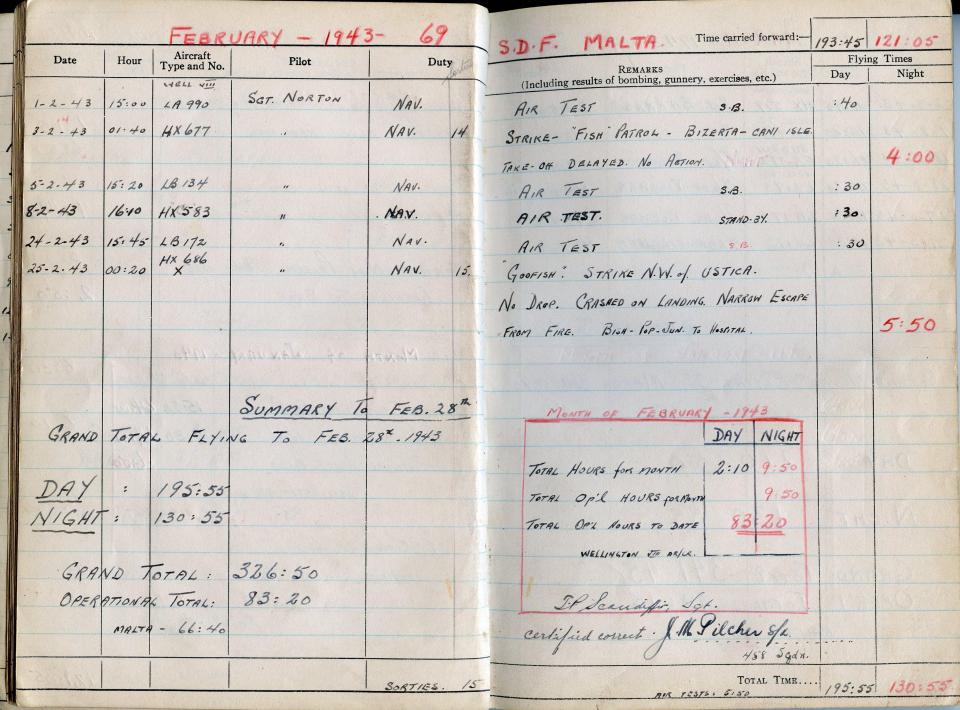 FEBRUARY - 1943- 69
Date Hour Aircraft Type and No. Pilot Duty
WELL VIII
1-2-43 15:00 LA 990 SGT. NORTON NAV.
3-2-43 01:40 HX 677 " NAV. 14
5-2-43 15:20 LB 134 " NAV.
8-2-43 16:10 HX 583 " NAV.
24-2-43 15:45 LB 172 " NAV.
25-2-43 00:20 HX 686 " NAV. 15.
X
SUMMARY TO FEB. 28th
GRAND TOTAL FLYING TO FEB. 28th - 1943
DAY : 195:55
NIGHT : 130:55
GRAND TOTAL: 326:50
OPERATIONAL TOTAL: 83:20
MALTA - 66:40
SORTIES. 15
S.D.F. MALTA. Time carried forward:— 193:45 121:05
REMARKS
(Including results of bombing, gunnery, exercises, etc.)
Flying Times
Day Night
AIR TEST S.B. :40
STRIKE- "FISH" PATROL - BIZERTA - CANI ISLE.
TAKE-OFF DELAYED. NO ACTION. 4:00
AIR TEST S.B. :30
AIR TEST. STAND-BY. :30
AIR TEST S.B. :30
"GOOFISH". STRIKE N.W. of USTICA.
NO DROP. CRASHED ON LANDING. NARROW ESCAPE
FROM FIRE. POP-JUN. TO HOSPITAL. 5:50
MONTH OF FEBRUARY - 1943
DAY NIGHT
TOTAL HOURS for MONTH 2:10 9:50
TOTAL OP'L HOURS for MONTH 9:50
TOTAL OP'L HOURS TO DATE 83:20
WELLINGTON VIII
Sgt.
certified correct. J. M. Pilcher S/L
458 Sqdn.
TOTAL TIME.... 195:55 130:55
AIR TESTS: 5:50